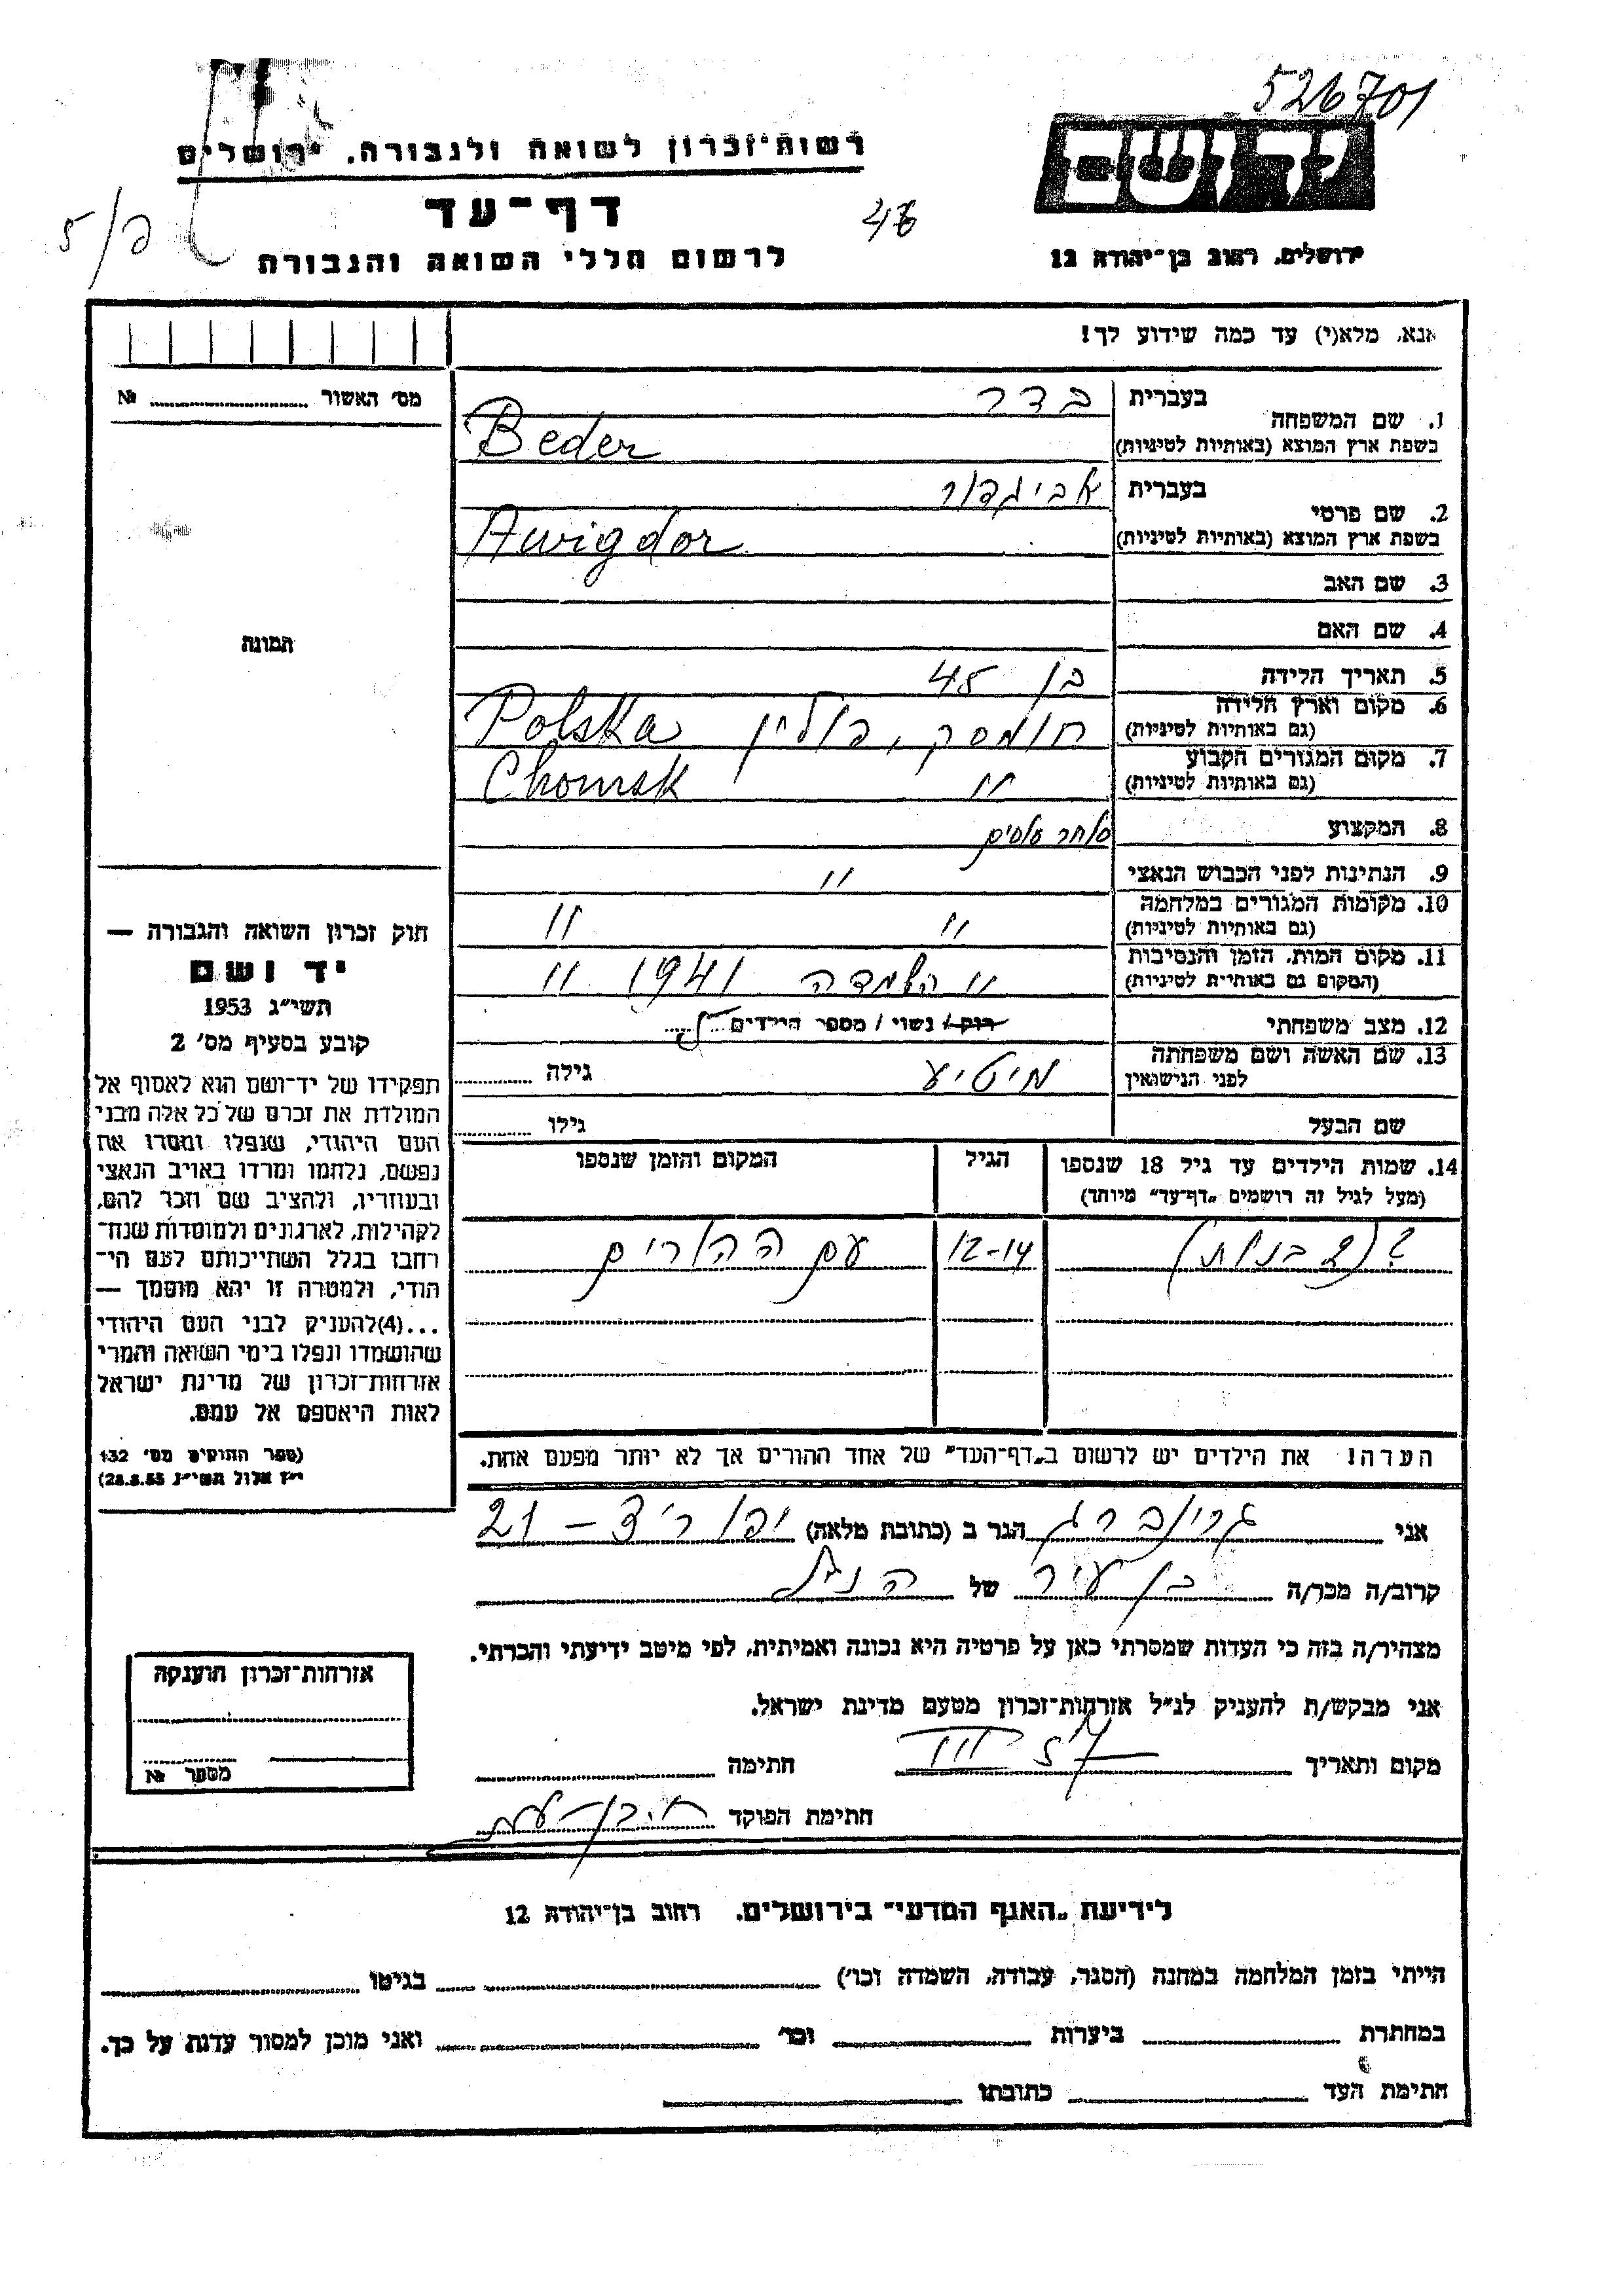 526701
יד ושם
ירושלים, רחוב בן־יהודה 12
רשות־זכרון לשואה ולגבורה, ירושלים
דף־עד
לרשום חללי השואה והגבורה
אנא, מלא(י) עד כמה שידוע לך!
מס' האשור № 
1. שם המשפחה בעברית בדר
בשפת ארץ המוצא (באותיות לטיניות) Beder
2. שם פרטי בעברית אביגדור
בשפת ארץ המוצא (באותיות לטיניות) Awigdor
3. שם האב
4. שם האם
תמונה
5. תאריך הלידה בן 45
6. מקום וארץ הלידה (גם באותיות לטיניות) חומסק, פולין Polska
7. מקום המגורים הקבוע (גם באותיות לטיניות) " Chomsk
8. המקצוע סוחר סוסים
9. הנתינות לפני הכבוש הנאצי "
10. מקומות המגורים במלחמה (גם באותיות לטיניות) " "
11. מקום המות, הזמן והנסיבות (המקום גם באותיות לטיניות) " השמדה 1941 "
12. מצב משפחתי רוק / נשוי / מספר הילדים
13. שם האשה ושם משפחתה לפני הנישואין גילה
שם הבעל גילו
14. שמות הילדים עד גיל 18 שנספו הגיל המקום והזמן שנספו
(מעל לגיל זה רושמים „דף־עד" מיוחד)
? (2 בנות) 12-14 עם ההורים
הערה! את הילדים יש לרשום ב„דף־העד" של אחד ההורים אך לא יותר מפעם אחת.
חוק זכרון השואה והגבורה —
יד ושם
תשי"ג 1953
קובע בסעיף מס' 2
תפקידו של יד־ושם הוא לאסוף אל
המולדת את זכרם של כל אלה מבני
העם היהודי, שנפלו ומסרו את
נפשם, נלחמו ומרדו באויב הנאצי
ובעוזריו, ולהציב שם וזכר להם,
לקהילות, לארגונים ולמוסדות שנח־
רבו בגלל השתייכותם לעם הי־
הודי, ולמטרה זו יהא מוסמך —
...(4) להעניק לבני העם היהודי
שהושמדו ונפלו בימי השואה והמרי
אזרחות־זכרון של מדינת ישראל
לאות היאספם אל עמם.
(ספר החוקים מס' 132
י"ז אלול תשי"ג 28.8.53)
אני גרינברג הגר ב (כתובת מלאה) יפו 21 -
קרוב/ה מכר/ה בן עיר של הנ"ל
מצהיר/ה בזה כי העדות שמסרתי כאן על פרטיה היא נכונה ואמיתית, לפי מיטב ידיעתי והכרתי.
אני מבקש/ת להעניק לנ"ל אזרחות־זכרון מטעם מדינת ישראל.
מקום ותאריך III 57 חתימה
חתימת הפוקד
אזרחות־זכרון הוענקה
מספר №
לידיעת „האגף המדעי" בירושלים, רחוב בן־יהודה 12
הייתי בזמן המלחמה במחנה (הסגר, עבודה, השמדה וכו') בגיטו
במחתרת ביערות וכו' ואני מוכן למסור עדות על כך.
חתימת העד כתובתו